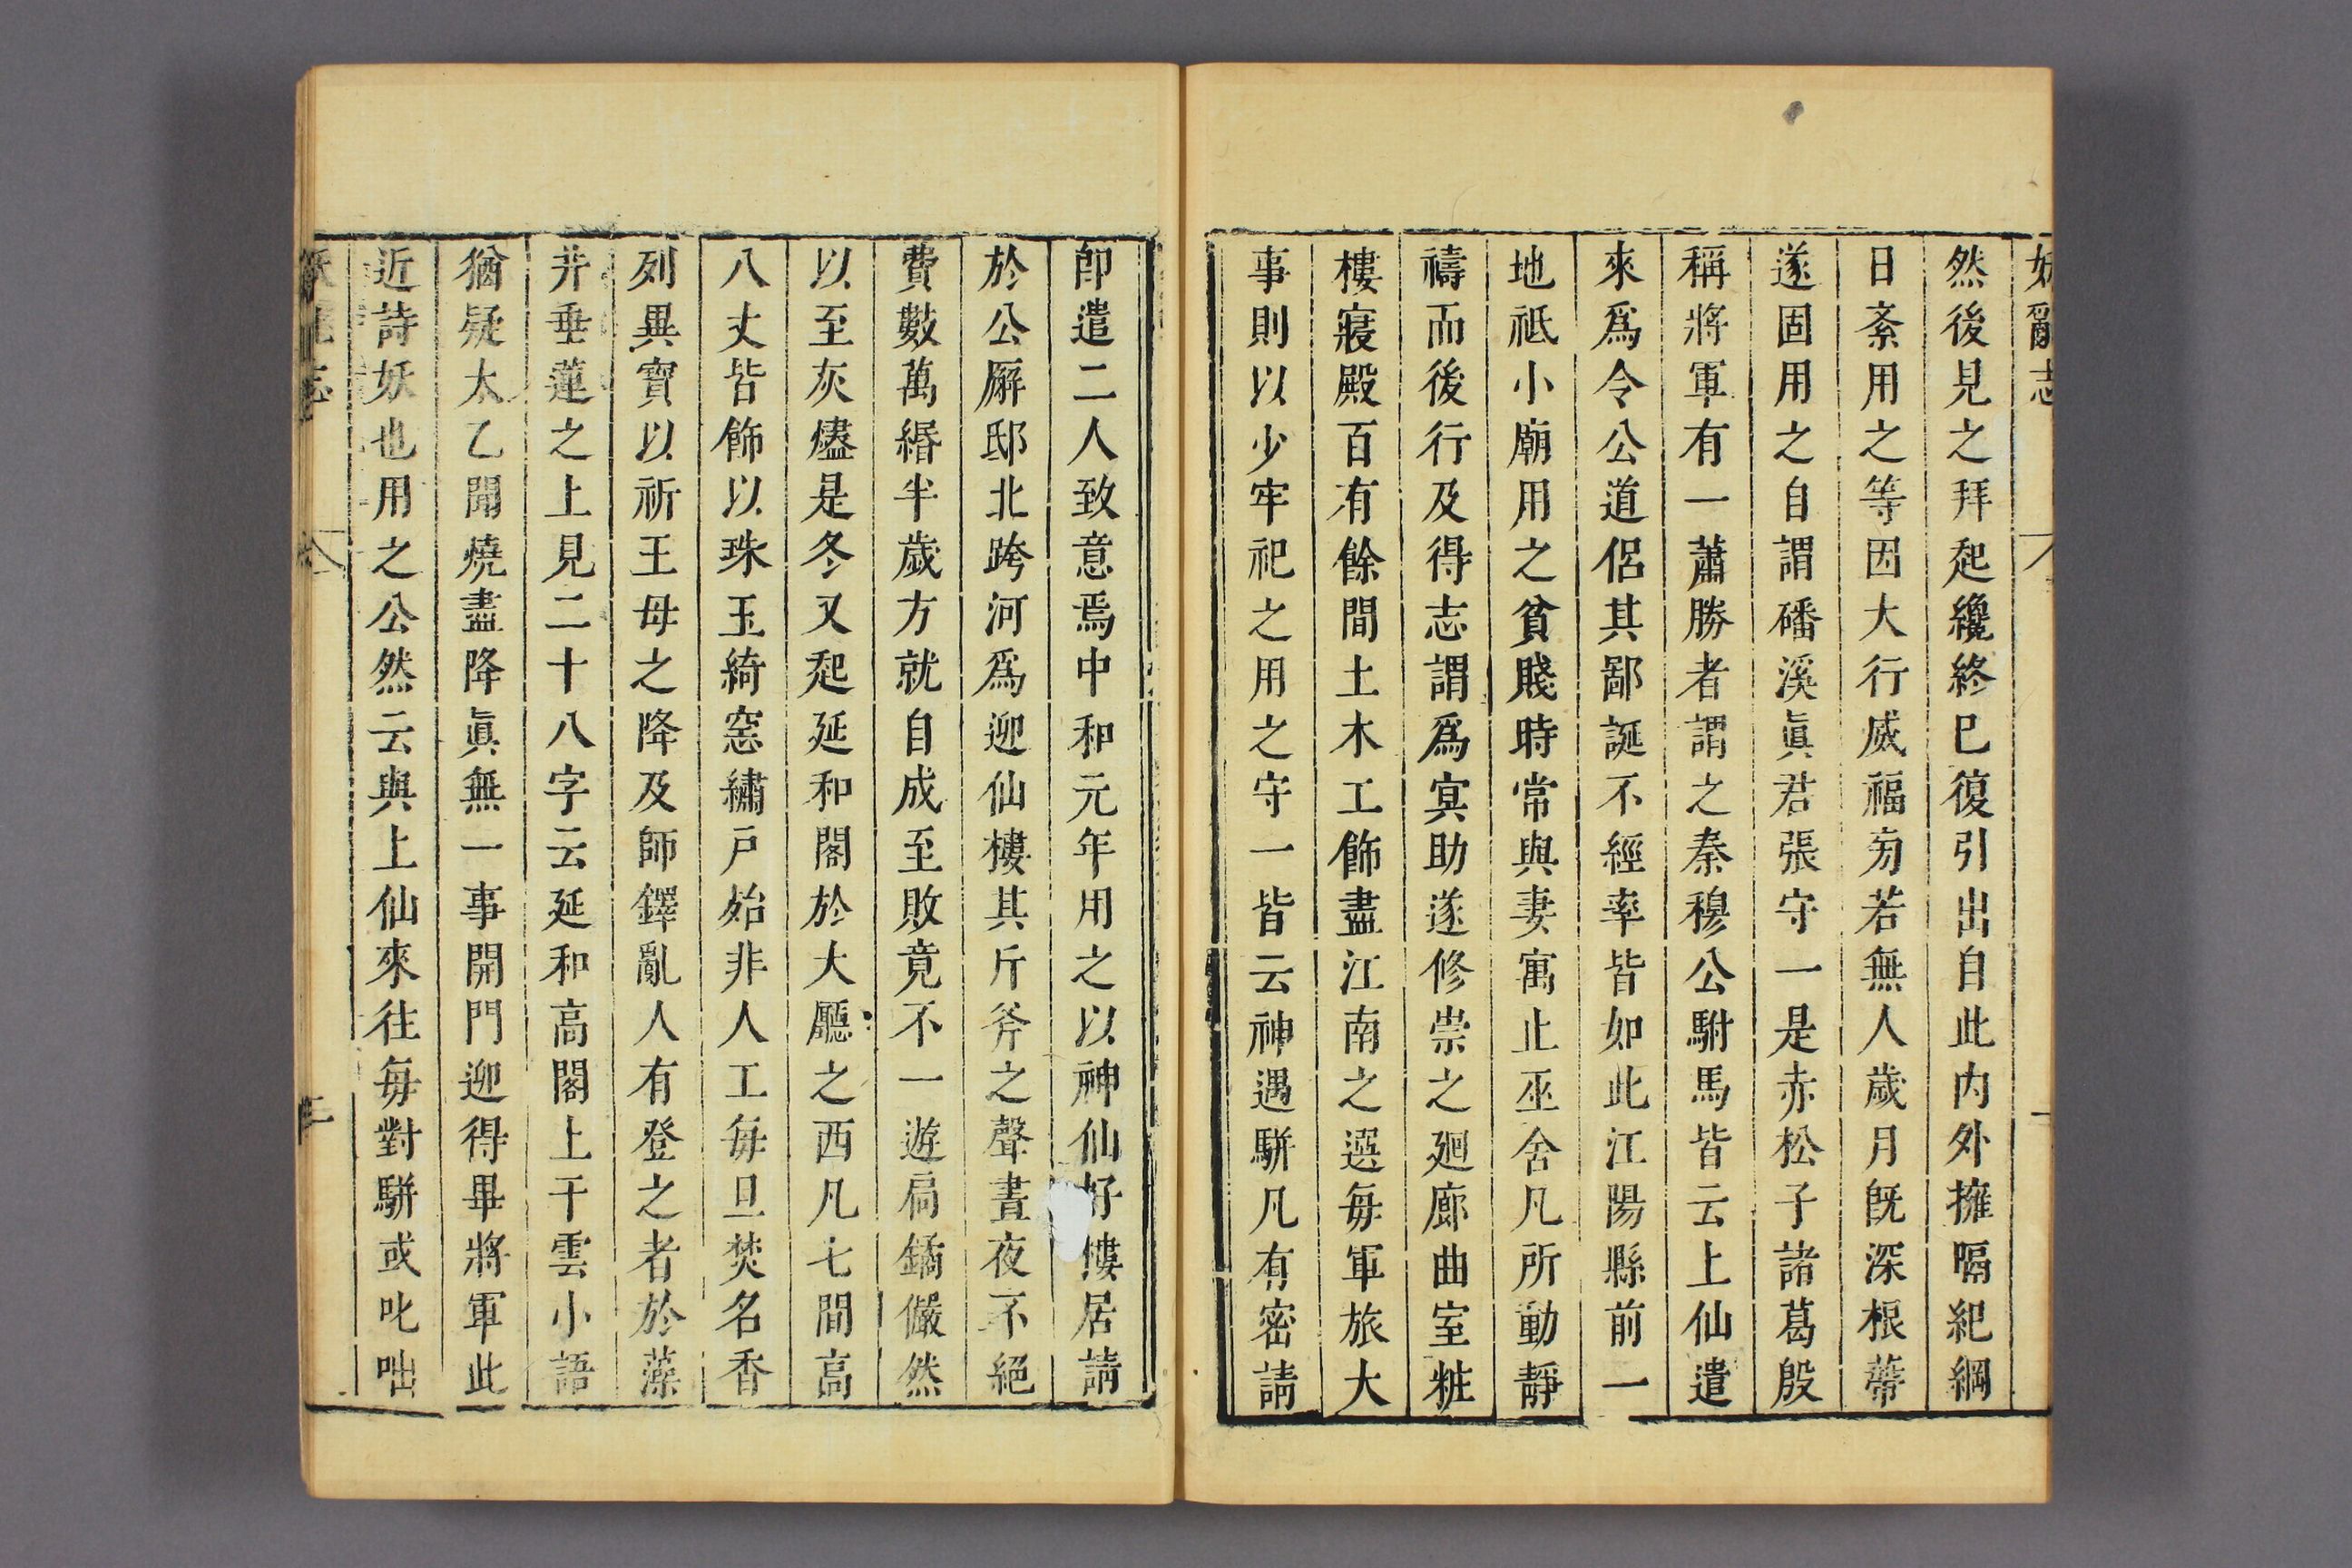 妖亂志
然後見之拜起纔終巳復引出自此内外擁隔紀綱
日紊用之等因大行威福旁若無人歲月旣深根蔕
遂固用之自謂磻溪眞君張守一是赤松子諸葛殷
稱將軍有一蕭勝者謂之秦穆公駙馬皆云上仙遣
來爲令公道侶其鄙誕不經率皆如此江陽縣前一
地祇小廟用之貧賤時常與妻寓止巫舍凡所動靜
禱而後行及得志謂爲冥助遂修崇之廻廊曲室粧
樓寢殿百有餘間土木工飾盡江南之選每軍旅大
事則以少牢祀之用之守一皆云神遇駢凡有密請
卽遣二人致意焉中和元年用之以神仙好慺居請
於公廨邸北跨河爲迎仙樓其斤斧之聲晝夜不絕
費數萬緡半歲方就自成至敗竟不一遊扃鐍儼然
以至灰燼是冬又起延和閣於大廳之西凡七間高
八丈皆飾以珠玉綺窓繡戶始非人工每旦焚名香
列異寶以祈王母之降及師鐸亂人有登之者於藻
井垂蓮之上見二十八字云延和高閣上干雲小語
猶疑太乙聞燒盡降眞無一事開門迎得畢將軍此
近詩妖也用之公然云與上仙來往每對駢或叱咄
妖亂志
二